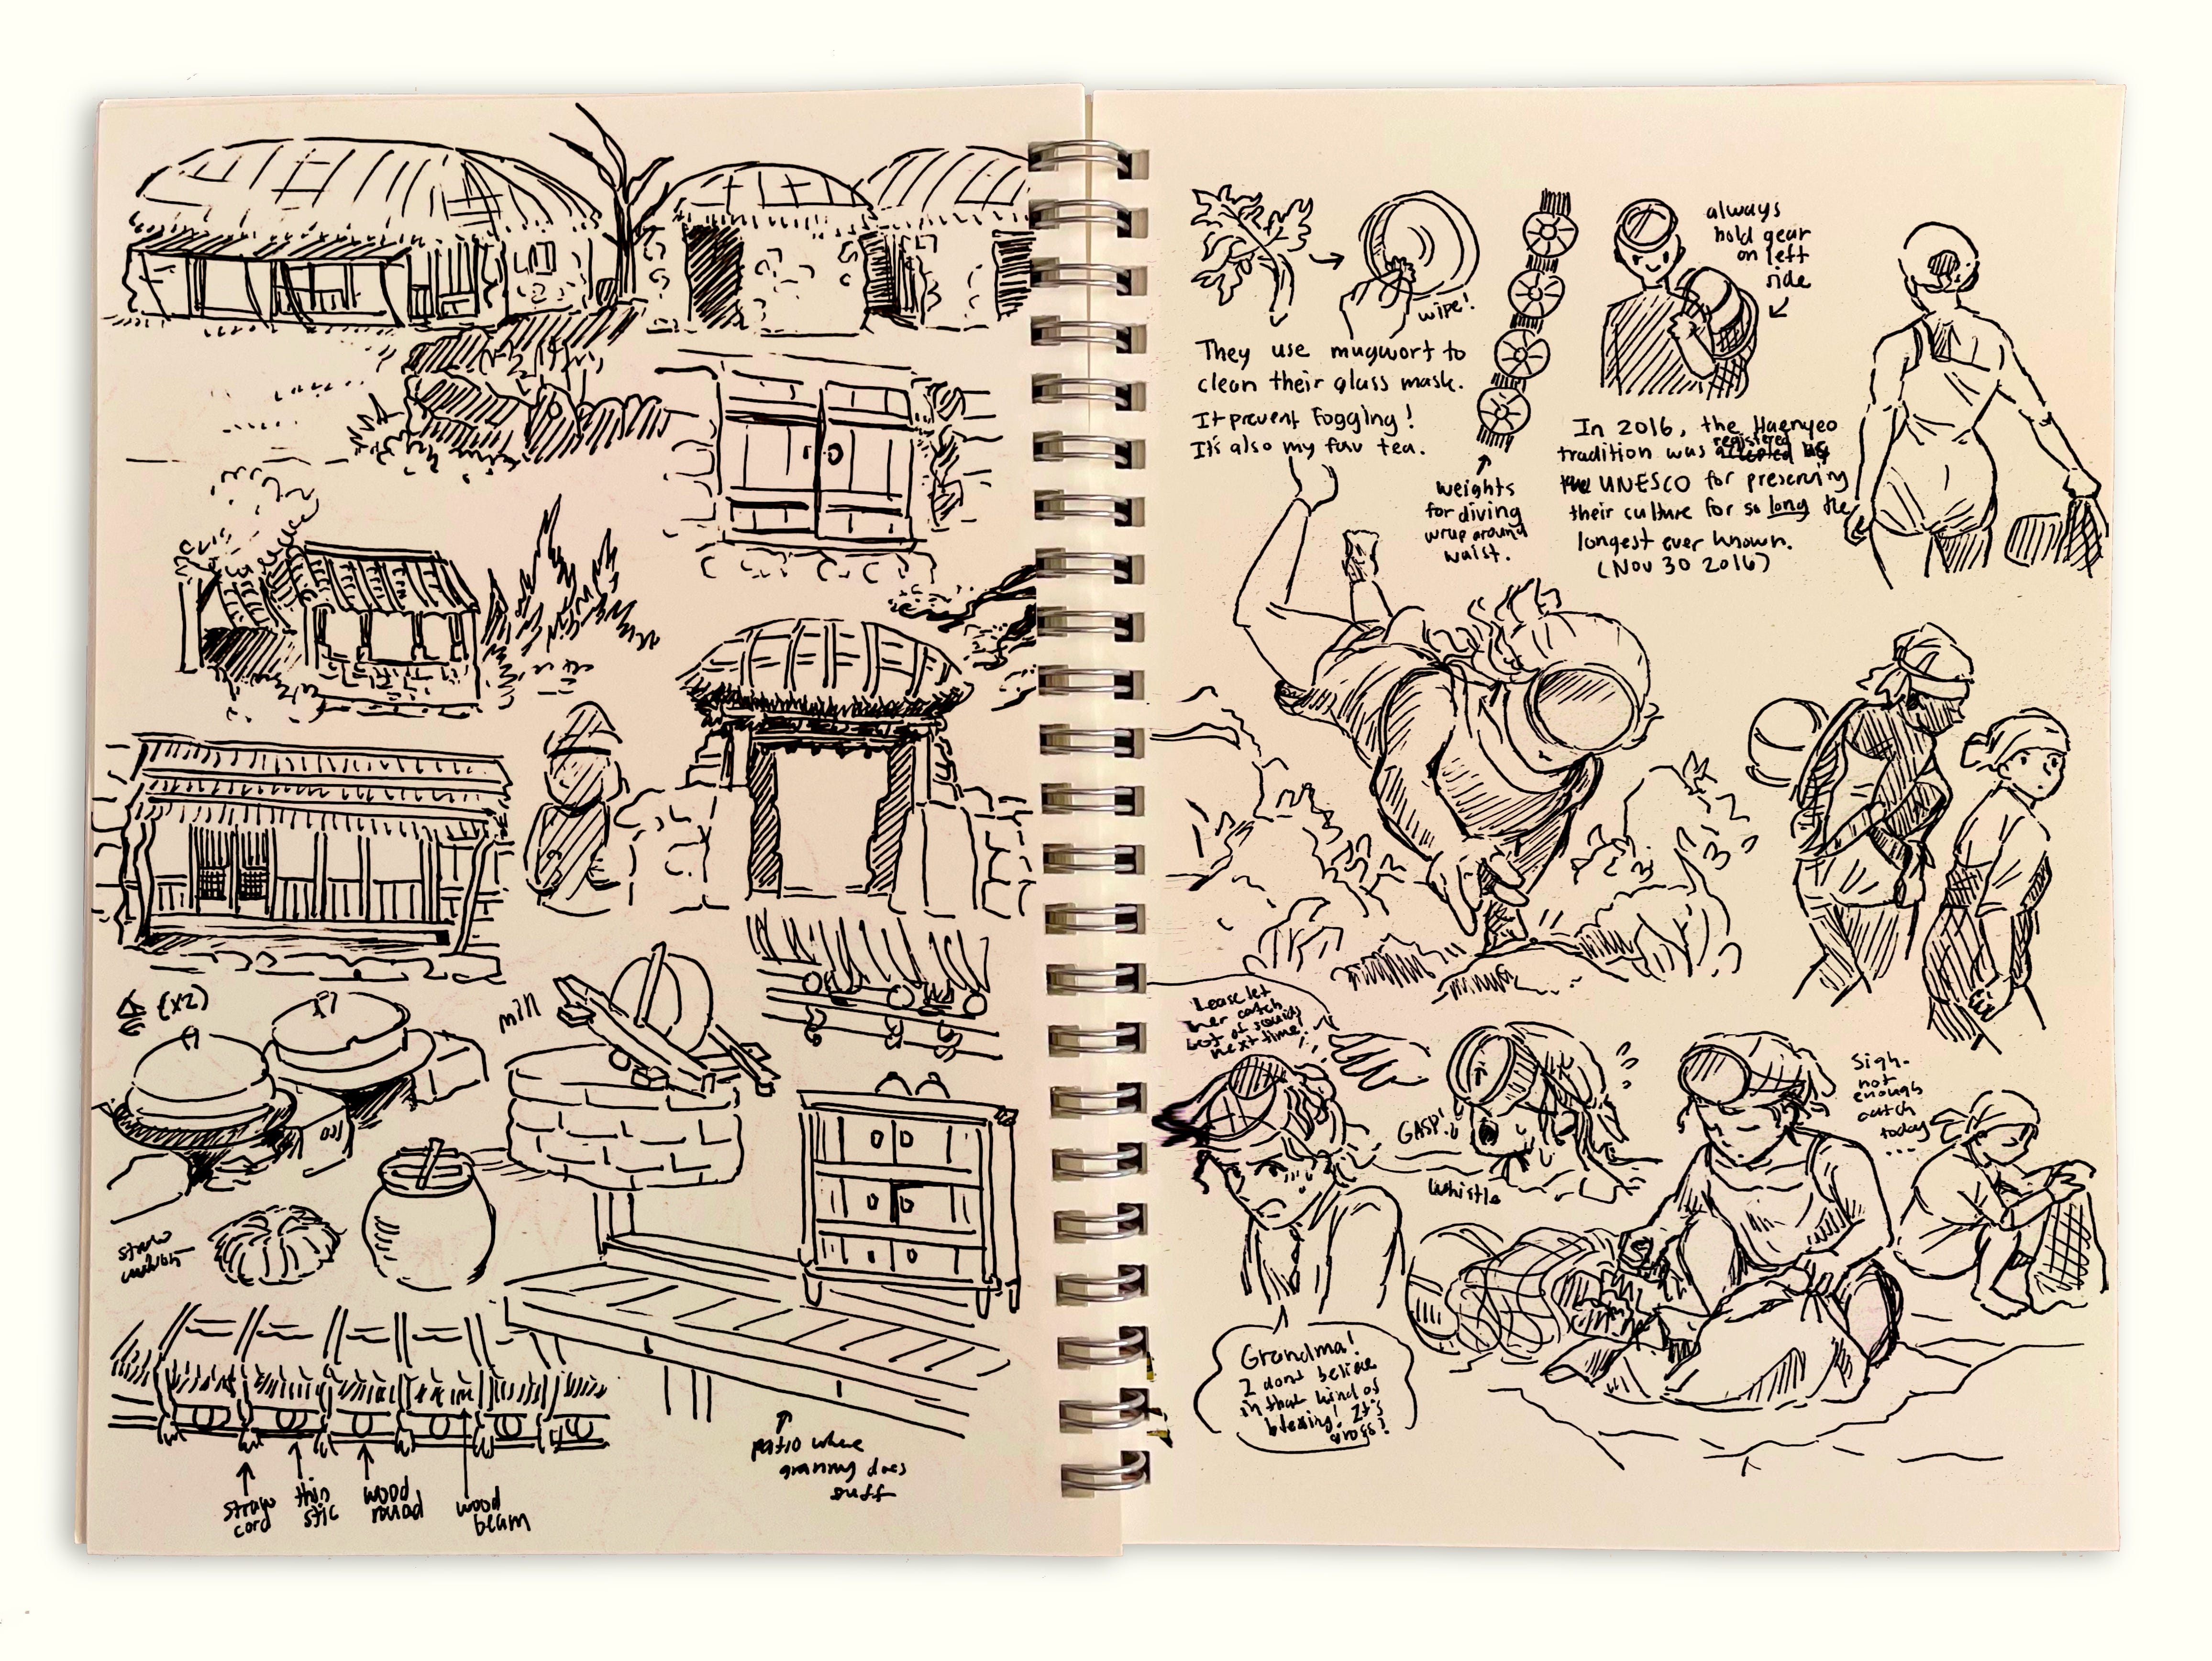 (x2)
mill
straw
cushion
straw
cord
thin
stic
wood
round
wood
beam
patio where
granny does
stuff
wipe!
They use mugwort to
clean their glass mask.
It prevent Fogging!
It's also my fav tea.
weights
for diving
wrap around
waist.
always
hold gear
on left
side
In 2016, the Haenyeo
registered
tradition was accepted as
the UNESCO for preserving
their culture for so long the
longest ever known.
(Nov 30 2016)
Please let
her catch
best of squids
next time!
GASP!
Whistle
Sigh..
not
enough
catch
today
...
Grandma!
I dont believe
in that kind of
blessing! It's
gross!